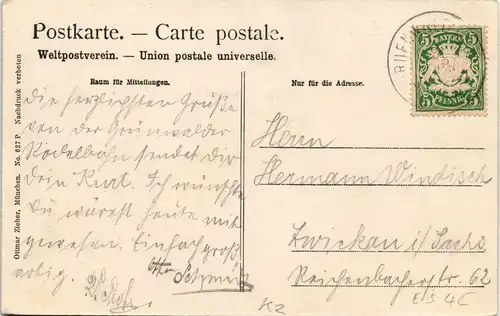 Postkarte. — Carte postale.
Weltpostverein. — Union postale universelle.
Raum für Mitteilungen.
Nur für die Adresse.
BAYERN
5 5
5 5
PFENNIG
Ottmar Zieher, München. No. 627 P Nachdruck verboten
die herzlichsten Grüße
von der Grünwalder
Rodelbahn sendet Dir
Dein Kurt. Ich wünschte
Du wärest heute mit
gewesen. Einfach groß
artig.
Otto Schmidt
Herrn
Hermann Windisch
Zwickau i/ Sachs
Reichenbacherstr. 62
K2